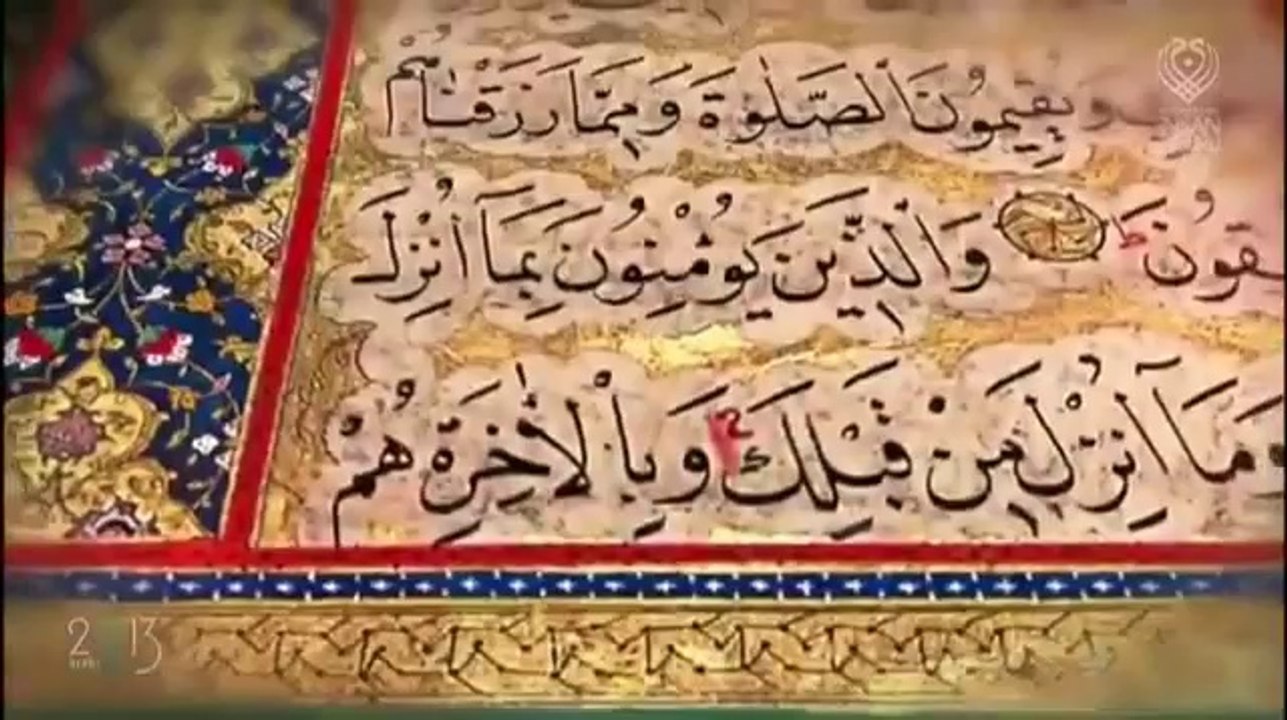 وَيُقِيمُونَ الصَّلٰوةَ وَمِمَّا رَزَقْنٰهُمْ
ـقُونَ ط وَالَّذِينَ يُؤْمِنُونَ بِمَآ اُنْزِلَ
وَمَآ اُنْزِلَ مِنْ قَبْلِكَ وَبِالْاٰخِرَةِ هُمْ
2 13